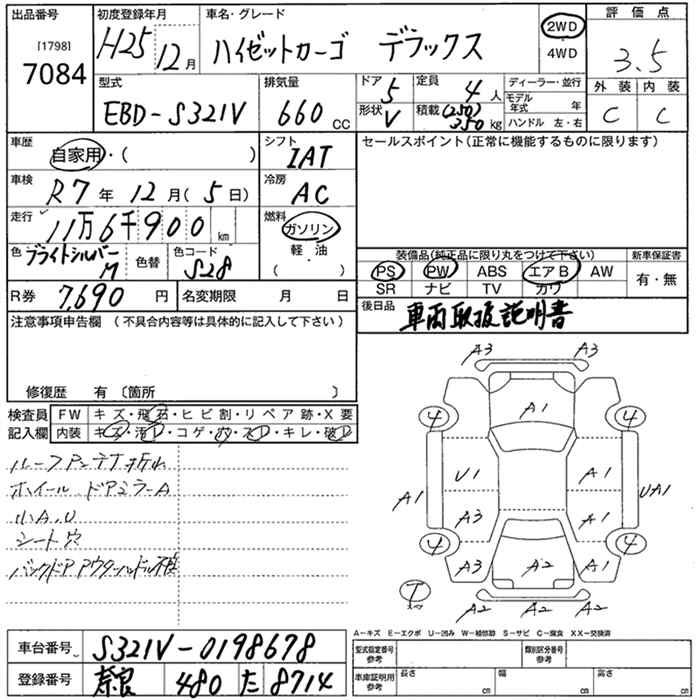 出品番号
[1798]
7084
初度登録年月
H25 12月
車名・グレード
ハイゼットカーゴ デラックス
2WD
4WD
評価点
3.5
外装 内装
C C
型式
EBD-S321V
排気量
660 CC
ドア
5
形状
V
定員
4人
積載
(250)
350kg
ディーラー・並行
モデル年式 年
ハンドル 左・右
車歴
自家用・( )
シフト
IAT
セールスポイント(正常に機能するものに限ります)
車検
R7年12月(5日)
冷房
AC
走行
11万6千900km
燃料
ガソリン
軽・油
( ・ )
色
ブライトシルバーM
色替
色コード
S28
装備品(純正品に限り丸をつけて下さい)
PS PW ABS エアB AW
SR ナビ TV カワ
新車保証書
有・無
R券 7,690円
名変期限 月 日
後日品
車両取扱説明書
注意事項申告欄(不具合内容等は具体的に記入して下さい)
修復歴 有〔箇所 〕
検査員記入欄
FW キズ・飛石・ヒビ割・リペア跡・X要
内装 キズ・汚レ・コゲ・穴・スレ・キレ・破レ
ルーフアンテナ折れ
ホイール ドアミラーA
小A.U
シート穴
バックドアアウターハンドル不良
A3 A3
4 A1 4
U1 A1
A1 UA1
A3 A1
4 4
A3 A2 A1
T
A2 A2
A-キズ E-エクボ U-凹み W-補修跡 S-サビ C-腐食 XX-交換済
車台番号 S321V-0198678
登録番号 奈良 480 た 8714
型式指定番号
参考
類別区分番号
参考
車庫証明用
参考
長さ cm
幅 cm
高さ cm